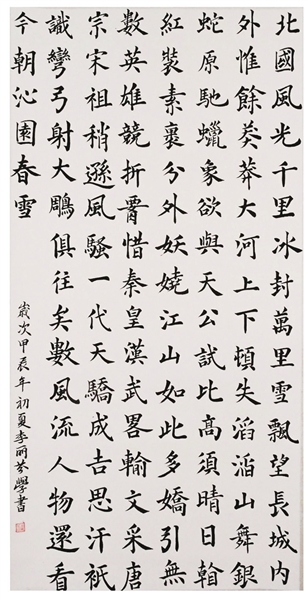 北國風光千里冰封萬里雪飄望長城內
外惟餘莽莽大河上下頓失滔滔山舞銀
蛇原馳蠟象欲與天公試比高須晴日
紅裝素裹分外妖嬈江山如此多嬌引無
數英雄競折腰惜秦皇漢武畧輸文采唐
宗宋祖稍遜風騷一代天驕成吉思汗衹
識彎弓射大鵰俱往矣數風流人物還看
今朝沁園春雪
歲次甲辰年初夏李丽芬學書